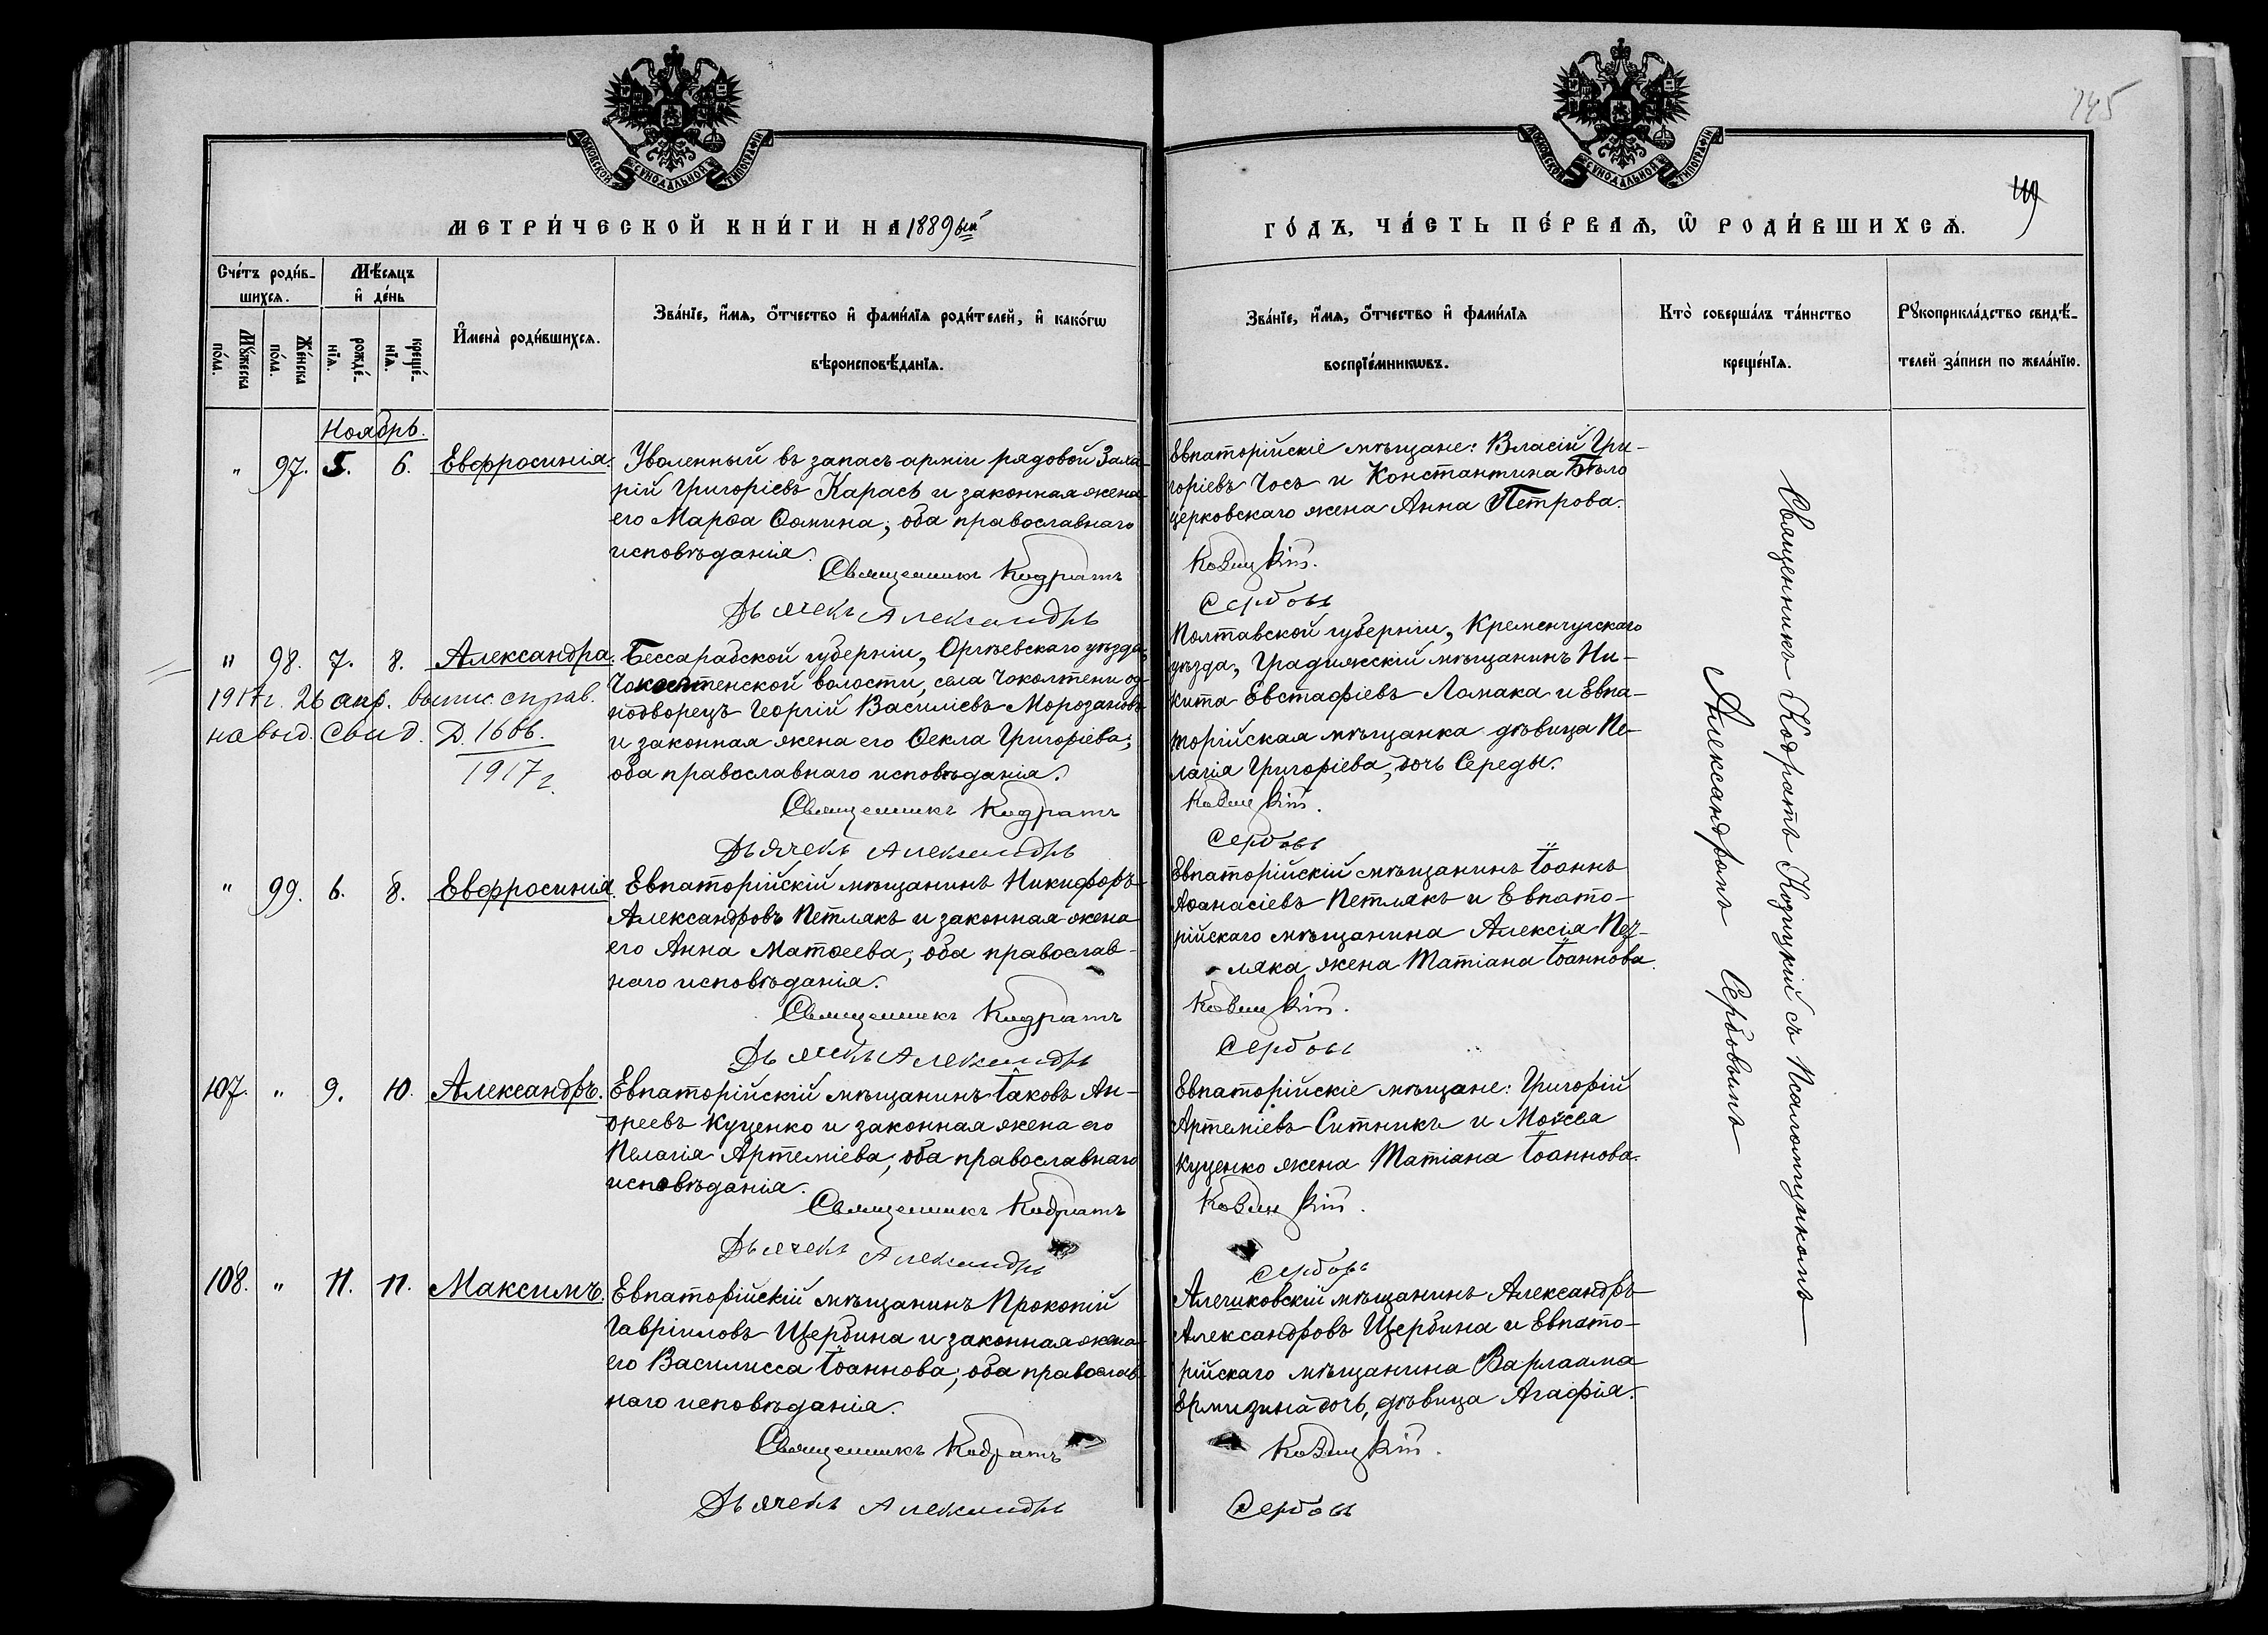 145
119
МОСКОВСКОЙ СѴНОДАЛЬНОЙ ТИПОГРАФІИ
МОСКОВСКОЙ СѴНОДАЛЬНОЙ ТИПОГРАФІИ
МЕТРИ́ЧЕСКОЙ КНИ́ГИ НА 1889ый
ГО́ДЪ, ЧА́СТЬ ПЕ́РВАѦ, Ѿ РОДИ́ВШИХСѦ.
Сче́тъ роди́в-
шихсѧ.
Мѣ́сѧцъ
и҆ де́нь
Мꙋ́жеска
по́ла.
Же́нска
по́ла.
рожде́-
нїѧ.
креще́-
нїѧ.
И҆мена̀ роди́вшихсѧ.
Зва́нїе, и҆́мѧ, ѻ҆́тчество и҆ фами́лїѧ роди́телей, и҆ како́гѡ
вѣроисповѣ́данїѧ.
Зва́нїе, и҆́мѧ, ѻ҆́тчество и҆ фами́лїѧ
воспрїе́мникѡвъ.
Кто̀ соверша́лъ та́инство
креще́нїѧ.
Рꙋкоприкла́дство свидѣ́-
телей за́писи по жела́нїю.
Ноябрь.
" 97. 5. 6. Евфросинія.
Уволенный въ запасъ арміи рядовой Заха-
рій Григоріевъ Карась и законная жена
его Марѳа Ѳомина; оба православнаго
исповѣданія.
Священникъ Кодратъ
Дьячекъ Александръ
Евпаторійскіе мѣщане: Власій Гри-
горіевъ Чосъ и Константина Бѣло
церковскаго жена Анна Петрова.
Козицкій.
Сербовъ
" 98. 7. 8. Александра.
1917 г. 26 апр. выпис. справ.
на выд. свид. Д. 166б.
1917 г.
Бессарабской губерніи, Оргѣевскаго уѣзда,
Чоколтенской волости, села Чоколтени од-
нодворецъ Георгій Василіевъ Морозановъ
и законная жена его Ѳекла Григоріева;
оба православнаго исповѣданія.
Священникъ Кодратъ
Дьячекъ Александръ
Полтавской губерніи, Кременчугскаго
уѣзда, Градижскій мѣщанинъ Ни-
кита Евстафіевъ Ломака и Евпа-
торійская мѣщанка дѣвица Пе-
лагія Григоріева, дочь Середы.
Козицкій.
Сербовъ
" 99. 6. 8. Евфросинія.
Евпаторійскій мѣщанинъ Никифоръ
Александровъ Петлякъ и законная жена
его Анна Матѳеева; оба православ-
наго исповѣданія.
Священникъ Кодратъ
Дьячекъ Александръ
Евпаторійскій мѣщанинъ Іоаннъ
Аѳанасіевъ Петлякъ и Евпато-
рійскаго мѣщанина Алексія Пет-
ляка жена Татіана Іоаннова.
Козицкій.
Сербовъ
107. " 9. 10. Александръ.
Евпаторійскій мѣщанинъ Іаковъ Ан-
дреевъ Куценко и законная жена его
Пелагія Артеміева; оба православнаго
исповѣданія.
Священникъ Кодратъ
Дьячекъ Александръ
Евпаторійскіе мѣщане: Григорій
Артеміевъ Ситникъ и Моѵсея
Куценко жена Татіана Іоаннова.
Козицкій.
Сербовъ
108. " 11. 11. Максимъ.
Евпаторійскій мѣщанинъ Прокопій
Гавріиловъ Щербина и законная жена
его Василисса Іоаннова; оба православ-
наго исповѣданія.
Священникъ Кодратъ
Дьячекъ Александръ
Алешковскій мѣщанинъ Александръ
Александровъ Щербина и Евпато-
рійскаго мѣщанина Варлаама
Ермизина дочь, дѣвица Агафія.
Козицкій.
Сербовъ
Священникъ Кодратъ Козицкій съ Псаломщикомъ
Александромъ Сербовымъ